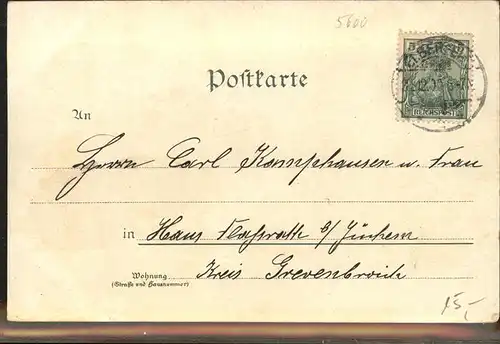 5600
Postkarte
ELBERFELD
REICHSPOST
An
Herrn Carl Kamphausen u. Frau
in Haus Nassrath b/ Jüchen
Kreis Grevenbroich
Wohnung
(Straße und Hausnummer)
15,-